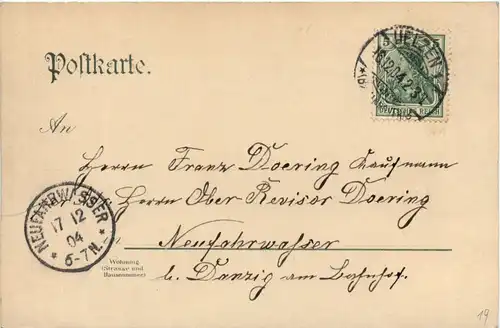 Postkarte.
UELZEN
16.12.04.2-3N
DEUTSCHES REICH
An
Herrn Franz Doering Kaufmann
Herrn Ober Revisor Doering
Neufahrwasser
b. Danzig am Bahnhof.
NEUFAHRWASSER
17 12
04
* 6-7N. *
Wohnung
(Strasse und
Hausnummer)
19